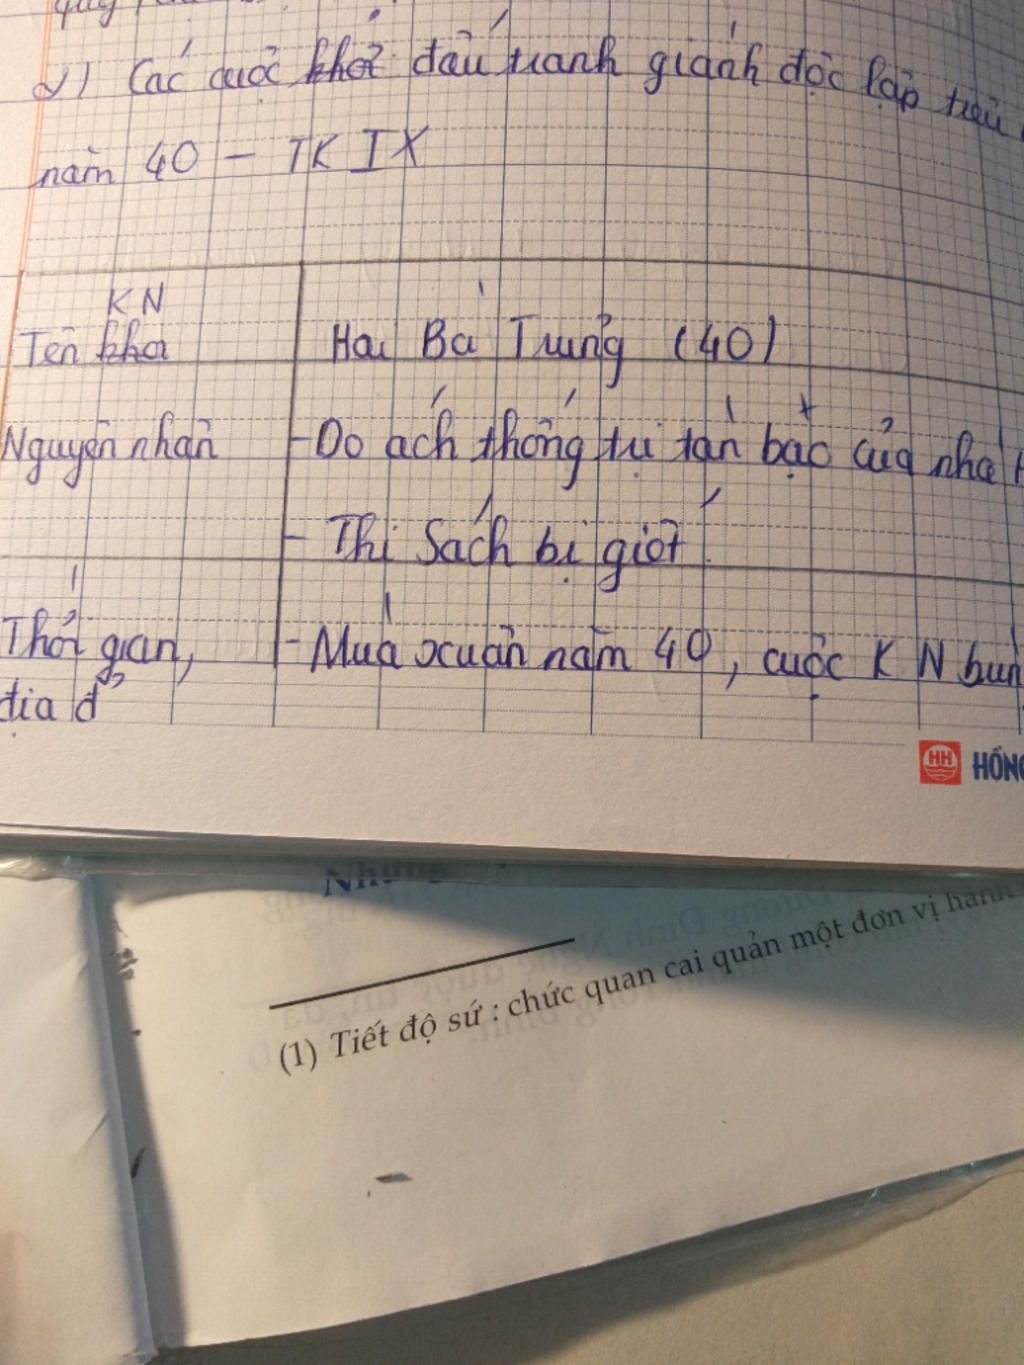 2) Các cuộc khởi đấu tranh giành độc lập tiêu
năm 40 - TK IX
KN
Tên khởi
Hai Bà Trưng (40)
Nguyên nhân
- Do ách thống trị tàn bạo của nhà H
- Thi Sách bị giết.
Thời gian,
- Mùa xuân năm 40, cuộc KN bùn
địa đ
HH HỒNG
Những
(1) Tiết độ sứ : chức quan cai quản một đơn vị hành